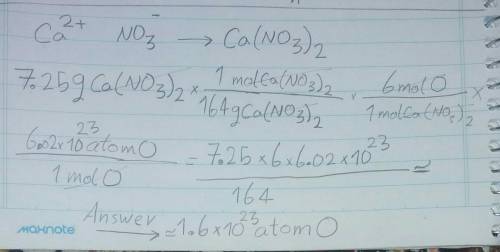 Ca²⁺ NO₃⁻ → Ca(NO₃)₂
7.25g Ca(NO₃)₂ × 1 mol Ca(NO₃)₂ / 164g Ca(NO₃)₂ × 6 mol O / 1 mol Ca(NO₃)₂ ×
6.02×10²³ atom O / 1 mol O = 7.25 × 6 × 6.02 × 10²³ / 164 ≃
Answer → ≃ 1.6 × 10²³ atom O
maxnote